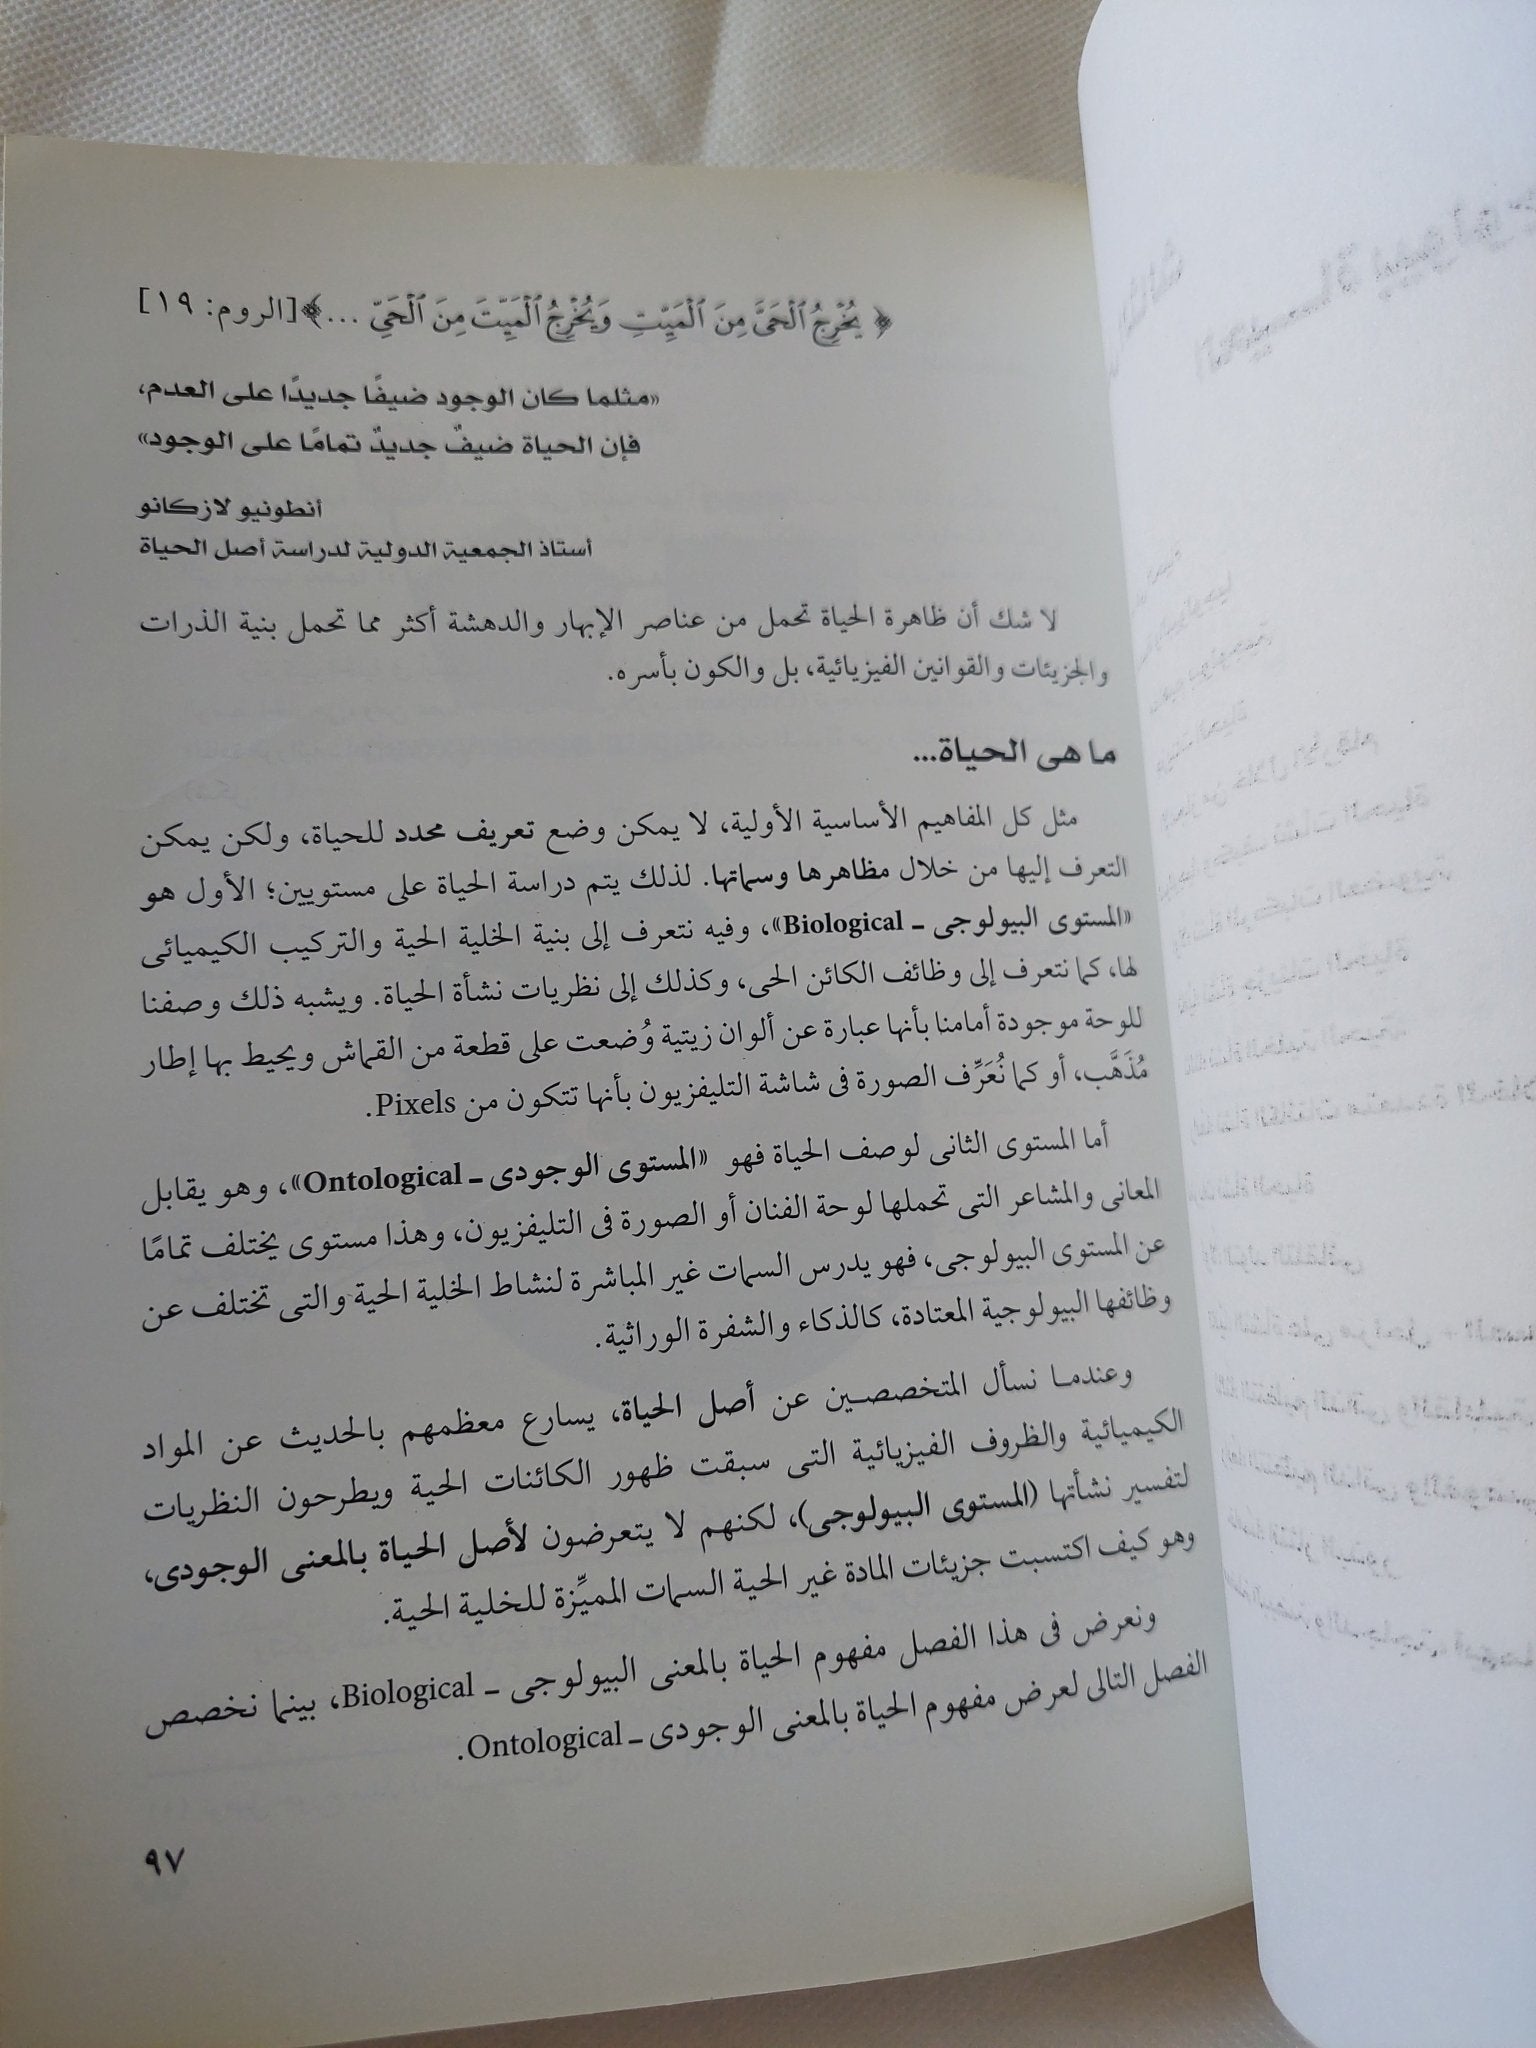 ﴿ يُخْرِجُ ٱلْحَىَّ مِنَ ٱلْمَيِّتِ وَيُخْرِجُ ٱلْمَيِّتَ مِنَ ٱلْحَىِّ ...﴾ [الروم: ١٩]
«مثلما كان الوجود ضيفًا جديدًا على العدم،
فإن الحياة ضيفٌ جديدٌ تمامًا على الوجود»
أنطونيو لازكانو
أستاذ الجمعية الدولية لدراسة أصل الحياة
لا شك أن ظاهرة الحياة تحمل من عناصر الإبهار والدهشة أكثر مما تحمل بنية الذرات
والجزيئات والقوانين الفيزيائية، بل والكون بأسره.
ما هى الحياة...
مثل كل المفاهيم الأساسية الأولية، لا يمكن وضع تعريف محدد للحياة، ولكن يمكن
التعرف إليها من خلال مظاهرها وسماتها. لذلك يتم دراسة الحياة على مستويين؛ الأول هو
«المستوى البيولوجى ـ Biological»، وفيه نتعرف إلى بنية الخلية الحية والتركيب الكيميائى
لها، كما نتعرف إلى وظائف الكائن الحى، وكذلك إلى نظريات نشأة الحياة. ويشبه ذلك وصفنا
للوحة موجودة أمامنا بأنها عبارة عن ألوان زيتية وُضعت على قطعة من القماش ويحيط بها إطار
مُذَهَّب، أو كما نُعَرِّف الصورة فى شاشة التليفزيون بأنها تتكون من Pixels.
أما المستوى الثانى لوصف الحياة فهو «المستوى الوجودى ـ Ontological»، وهو يقابل
المعانى والمشاعر التى تحملها لوحة الفنان أو الصورة فى التليفزيون، وهذا مستوى يختلف تمامًا
عن المستوى البيولوجى، فهو يدرس السمات غير المباشرة لنشاط الخلية الحية والتى تختلف عن
وظائفها البيولوجية المعتادة، كالذكاء والشفرة الوراثية.
وعندما نسأل المتخصصين عن أصل الحياة، يسارع معظمهم بالحديث عن المواد
الكيميائية والظروف الفيزيائية التى سبقت ظهور الكائنات الحية ويطرحون النظريات
لتفسير نشأتها (المستوى البيولوجى)، لكنهم لا يتعرضون لأصل الحياة بالمعنى الوجودى،
وهو كيف اكتسبت جزيئات المادة غير الحية السمات المميِّزة للخلية الحية.
ونعرض فى هذا الفصل مفهوم الحياة بالمعنى البيولوجى ـ Biological، بينما نخصص
الفصل التالى لعرض مفهوم الحياة بالمعنى الوجودى ـ Ontological.
٩٧